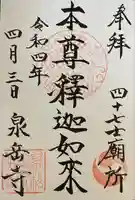 奉拝
四十七士廟所
本尊釋迦如来
令和四年
四月三日
泉岳寺